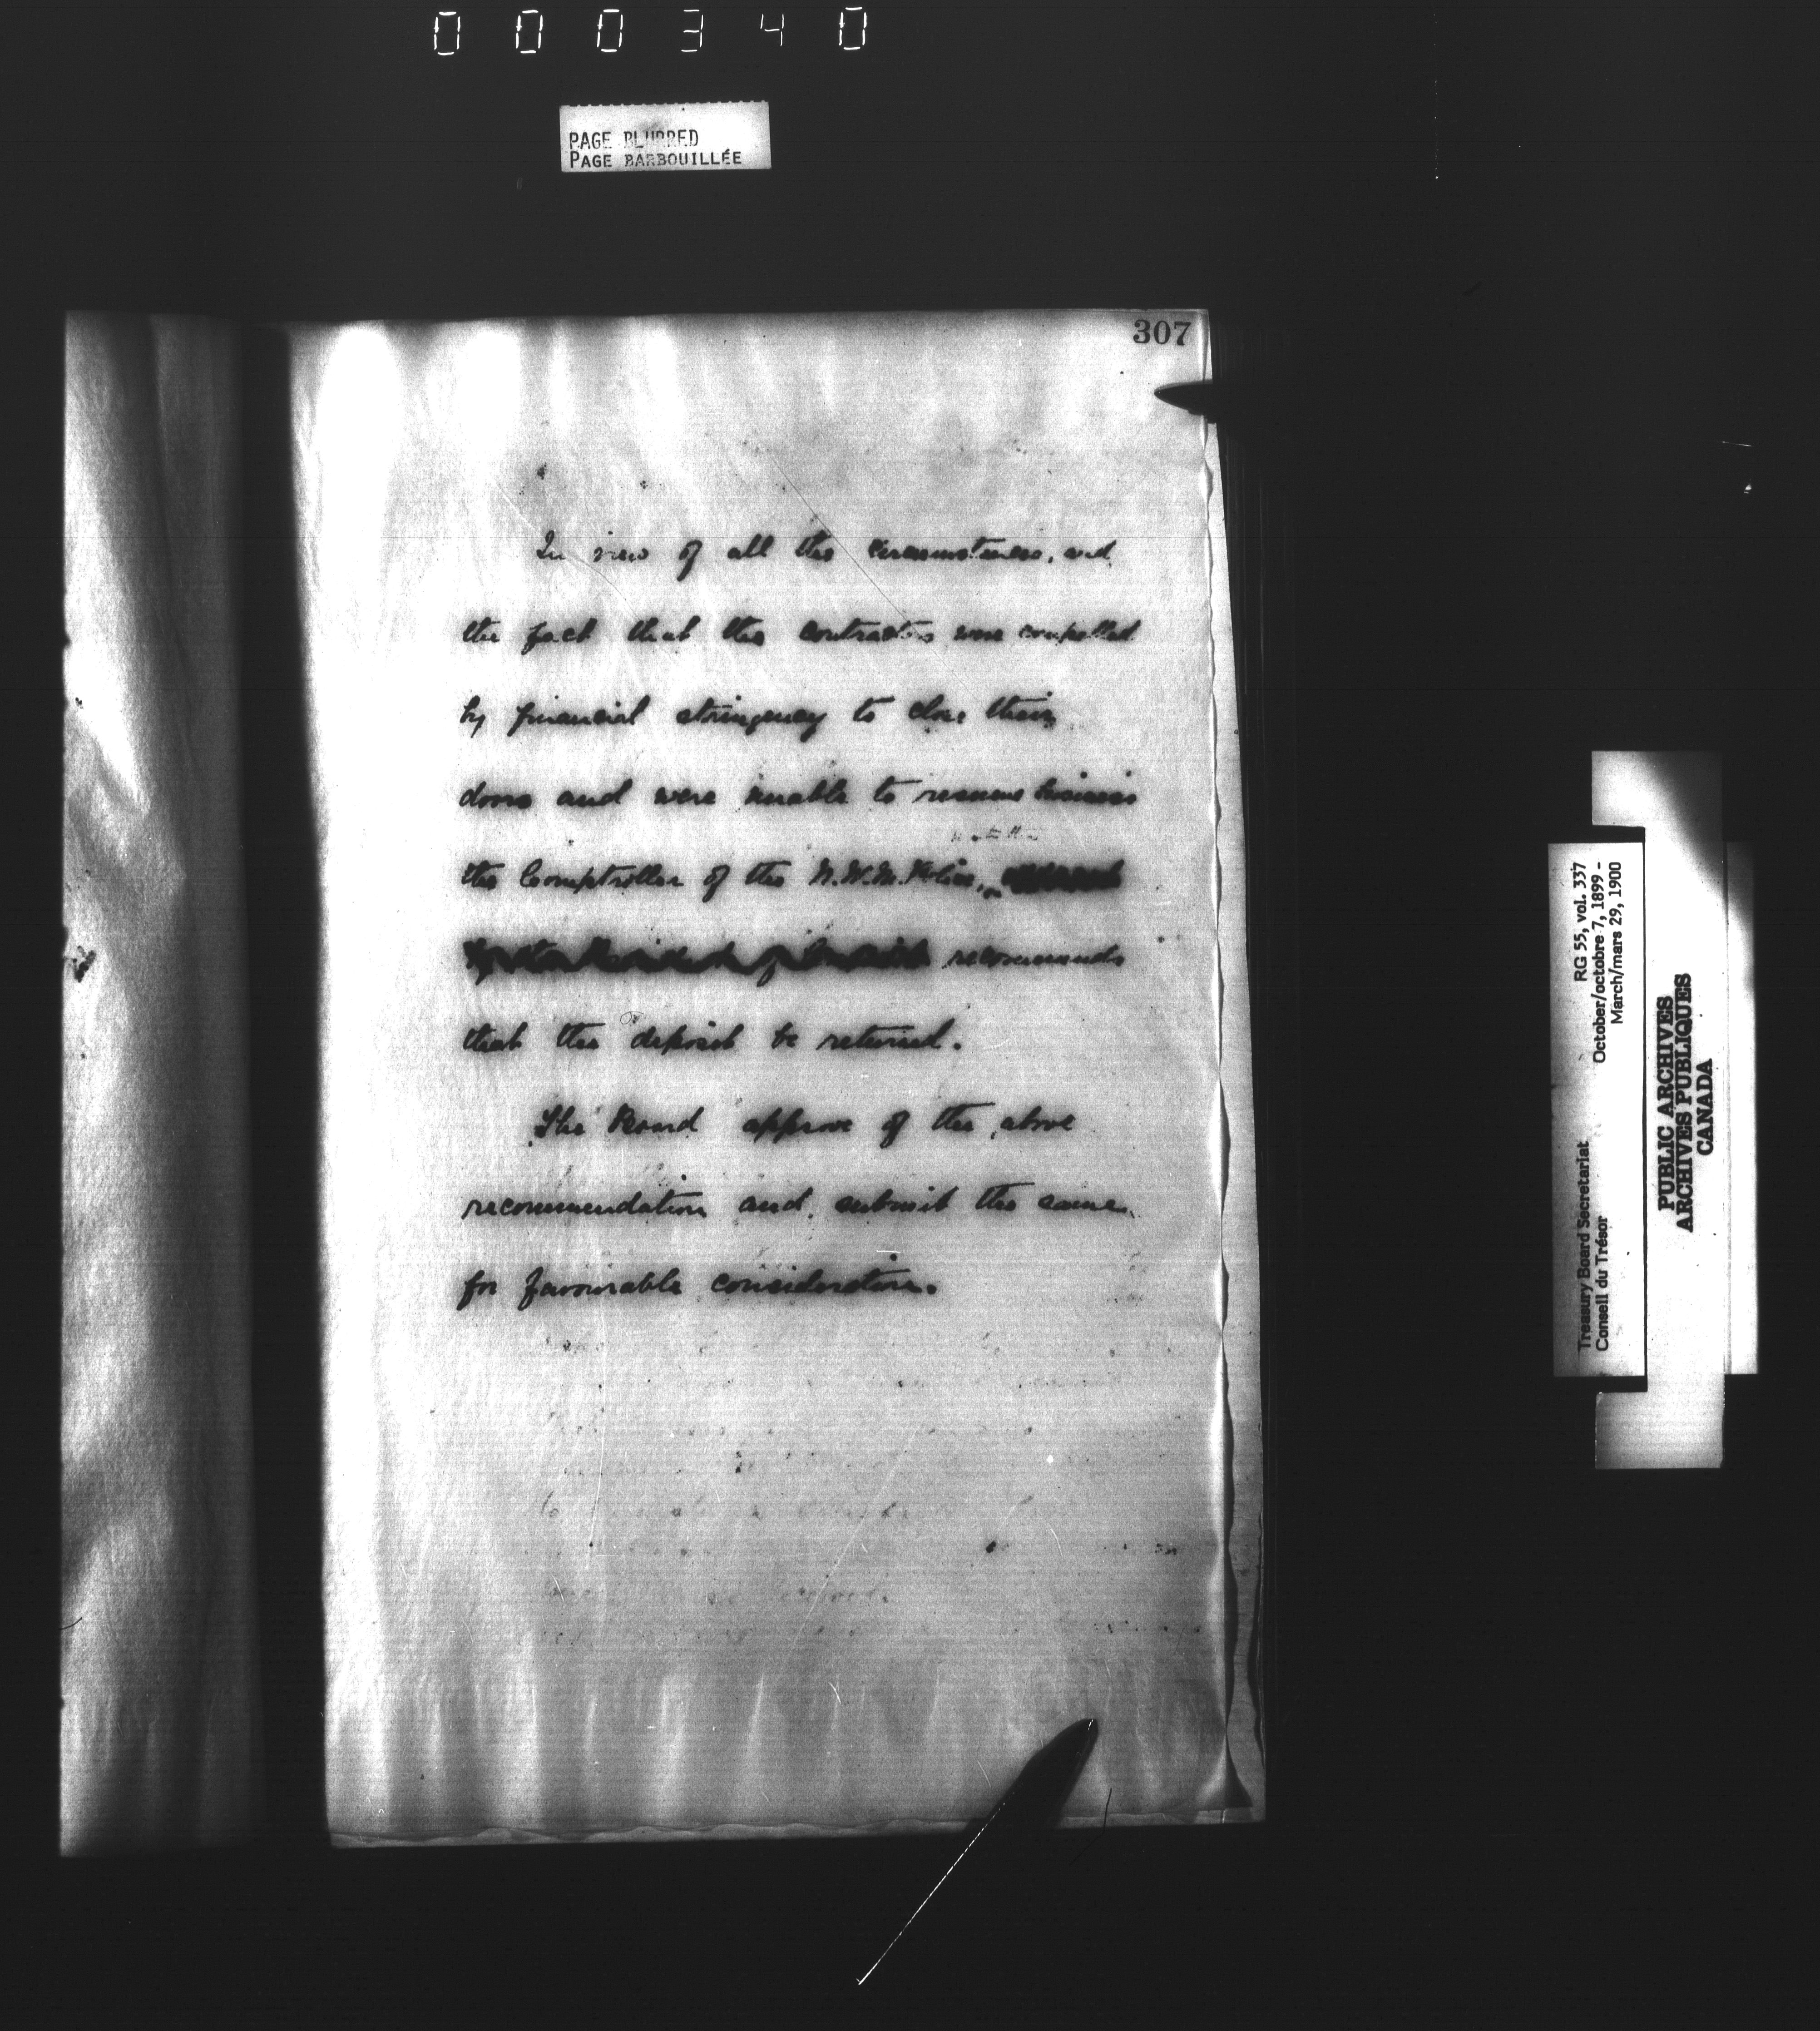 000340
PAGE BLURRED
PAGE BARBOUILLÉE
307
In view of all the circumstances, and
the fact that the contractors were compelled
by financial stringency to close their
doors and were unable to resume business
the Comptroller of the N.W.M. Police,
recommends
that the deposit be returned.
The Board approve of the above
recommendation and submit the same
for favourable consideration.
Treasury Board Secretariat RG 55, vol. 337
Conseil du Trésor October/octobre 7, 1899 -
March/mars 29, 1900
PUBLIC ARCHIVES
ARCHIVES PUBLIQUES
CANADA